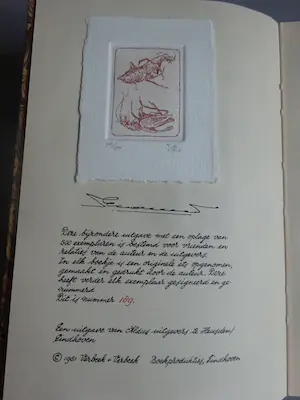 Deze bijzondere uitgave met een oplage van
500 exemplaren is bestemd voor vrienden en
relaties van de auteur en de uitgevers.
In elk boekje is een originele ets opgenomen,
gemaakt en gedrukt door de auteur. Deze
heeft verder elk exemplaar gesigneerd en ge-
nummerd.
Dit is nummer 169.
Een uitgave van Aldus uitgevers te Heusden/
Eindhoven
© 1981 Verbeek + Verbeek Boekprodukties, Eindhoven